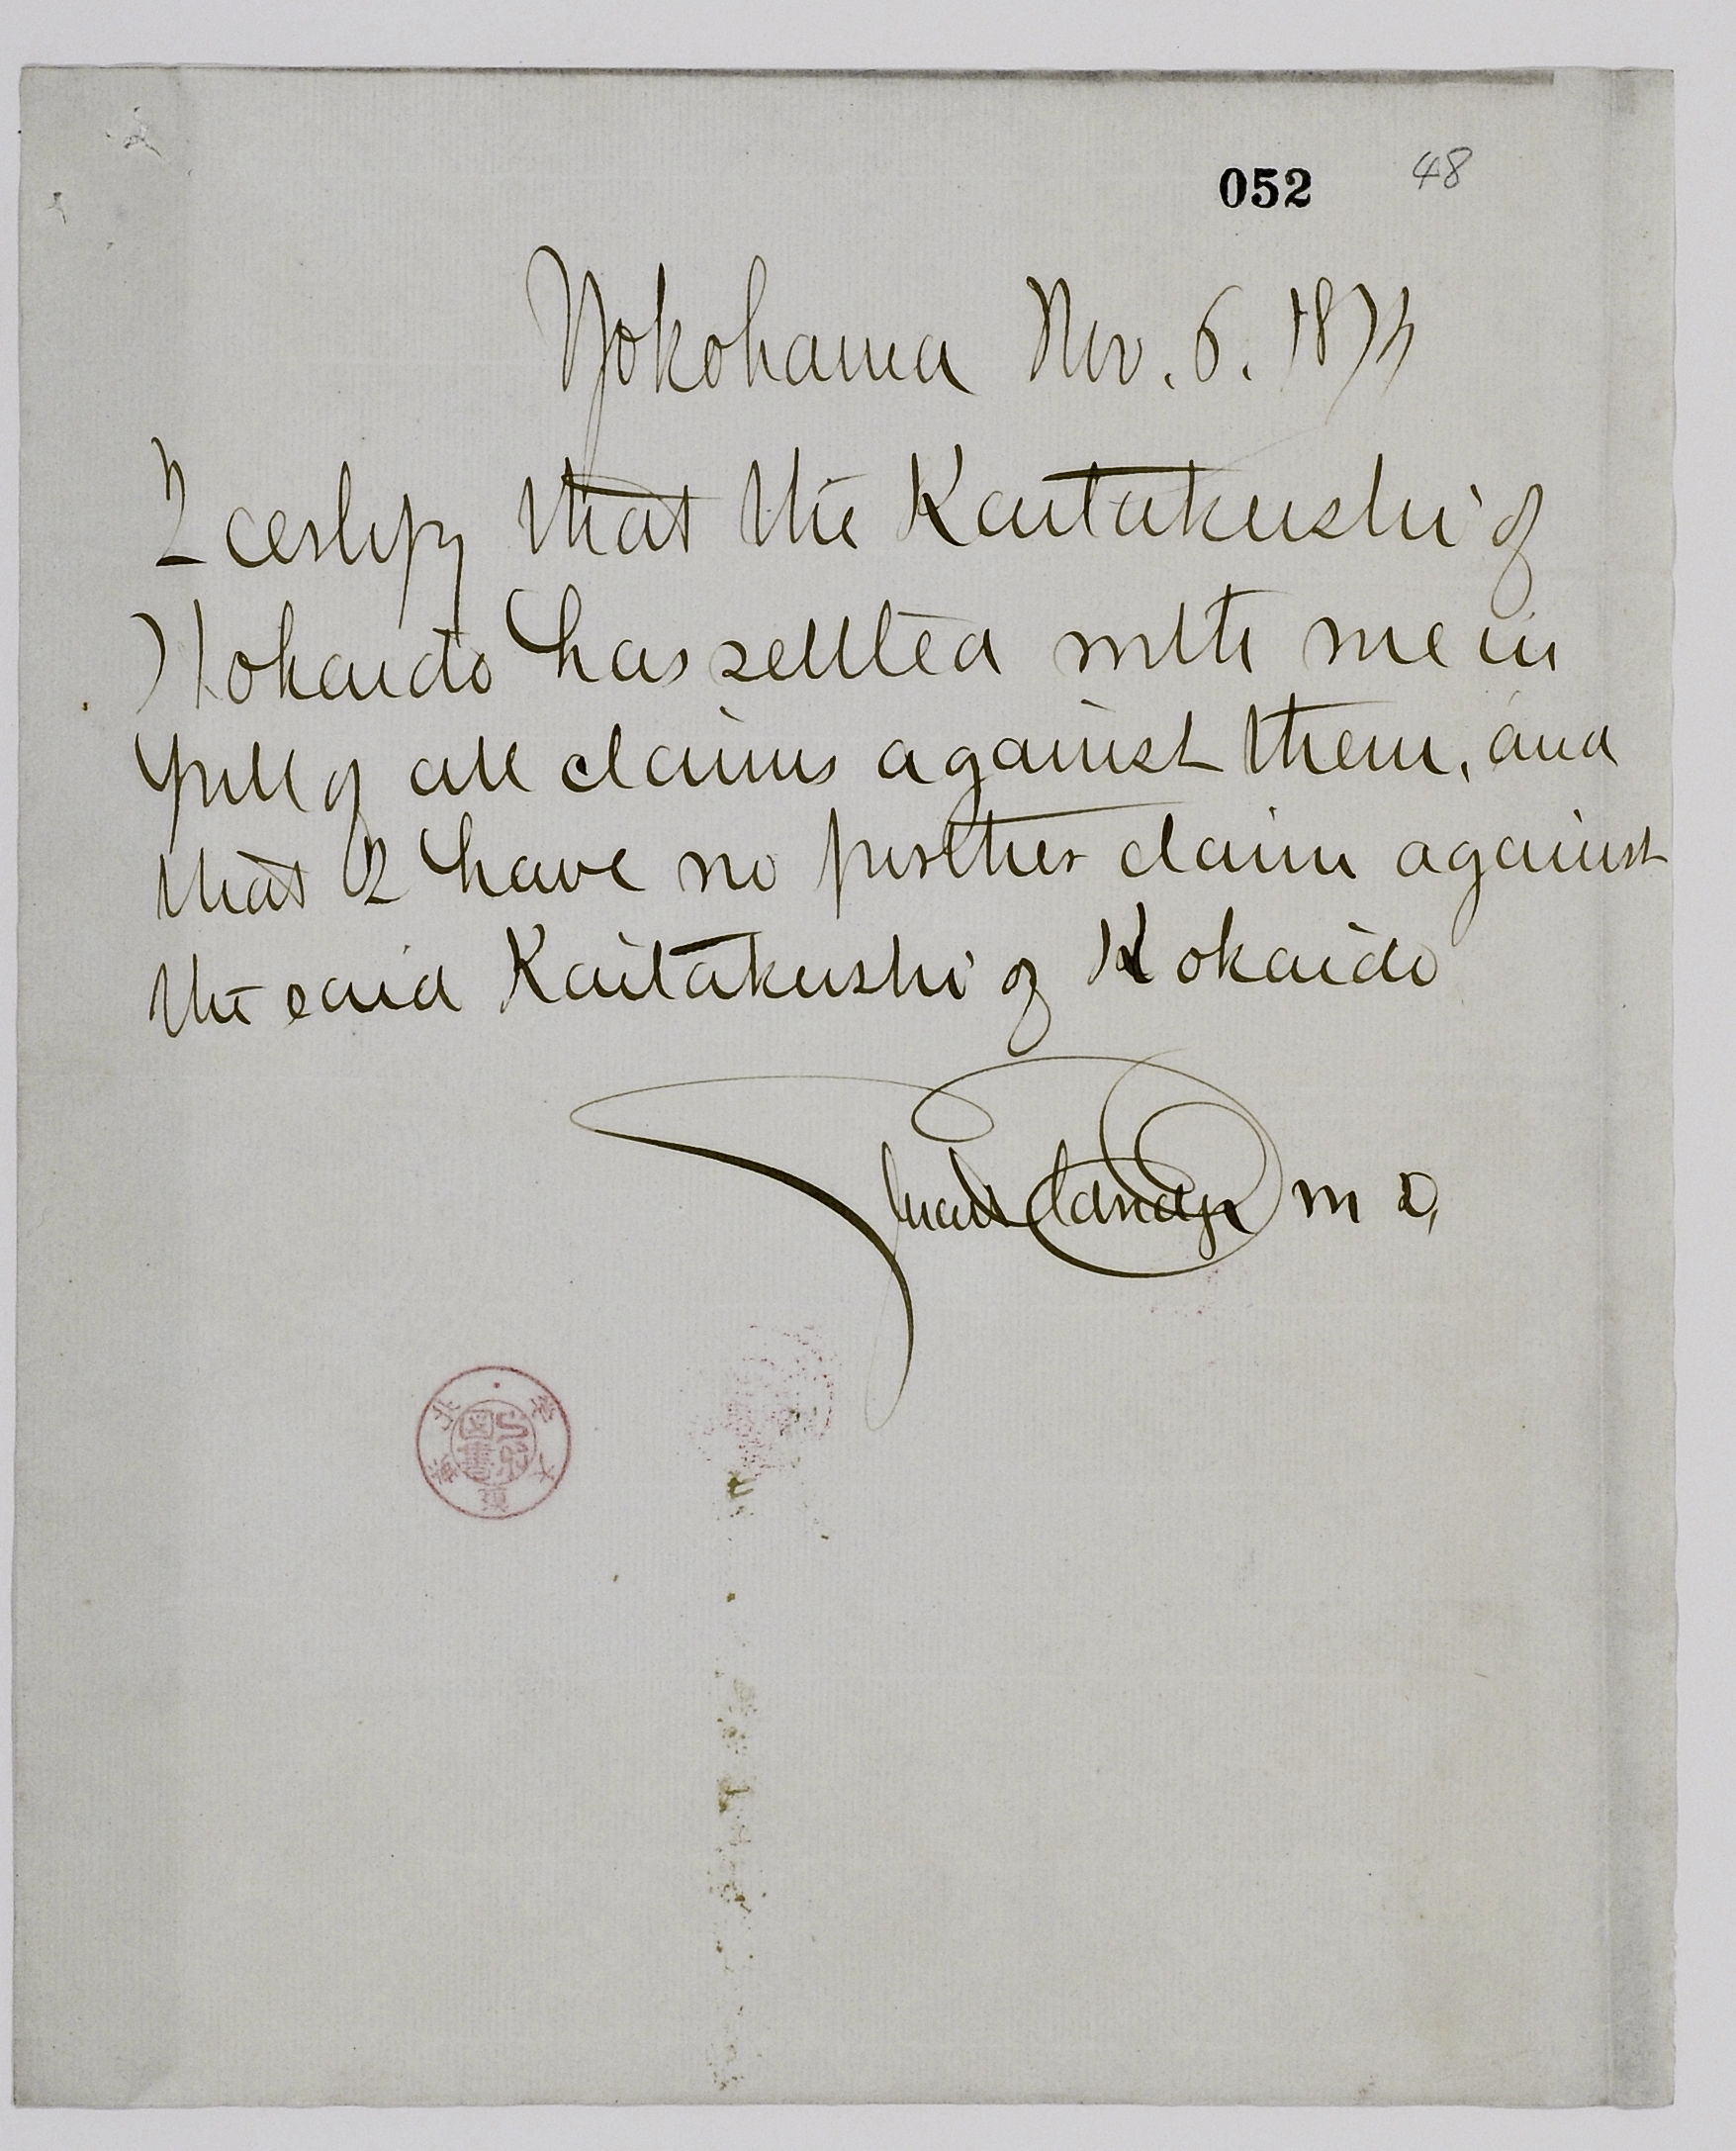 052 48
Yokohama Nov. 6. 1874
I certify that the Kaitakushi of
Hokaido has settled with me in
full of all claims against them, and
that I have no further claim against
the said Kaitakushi of Hokaido
M D,
北海道大學
圖書